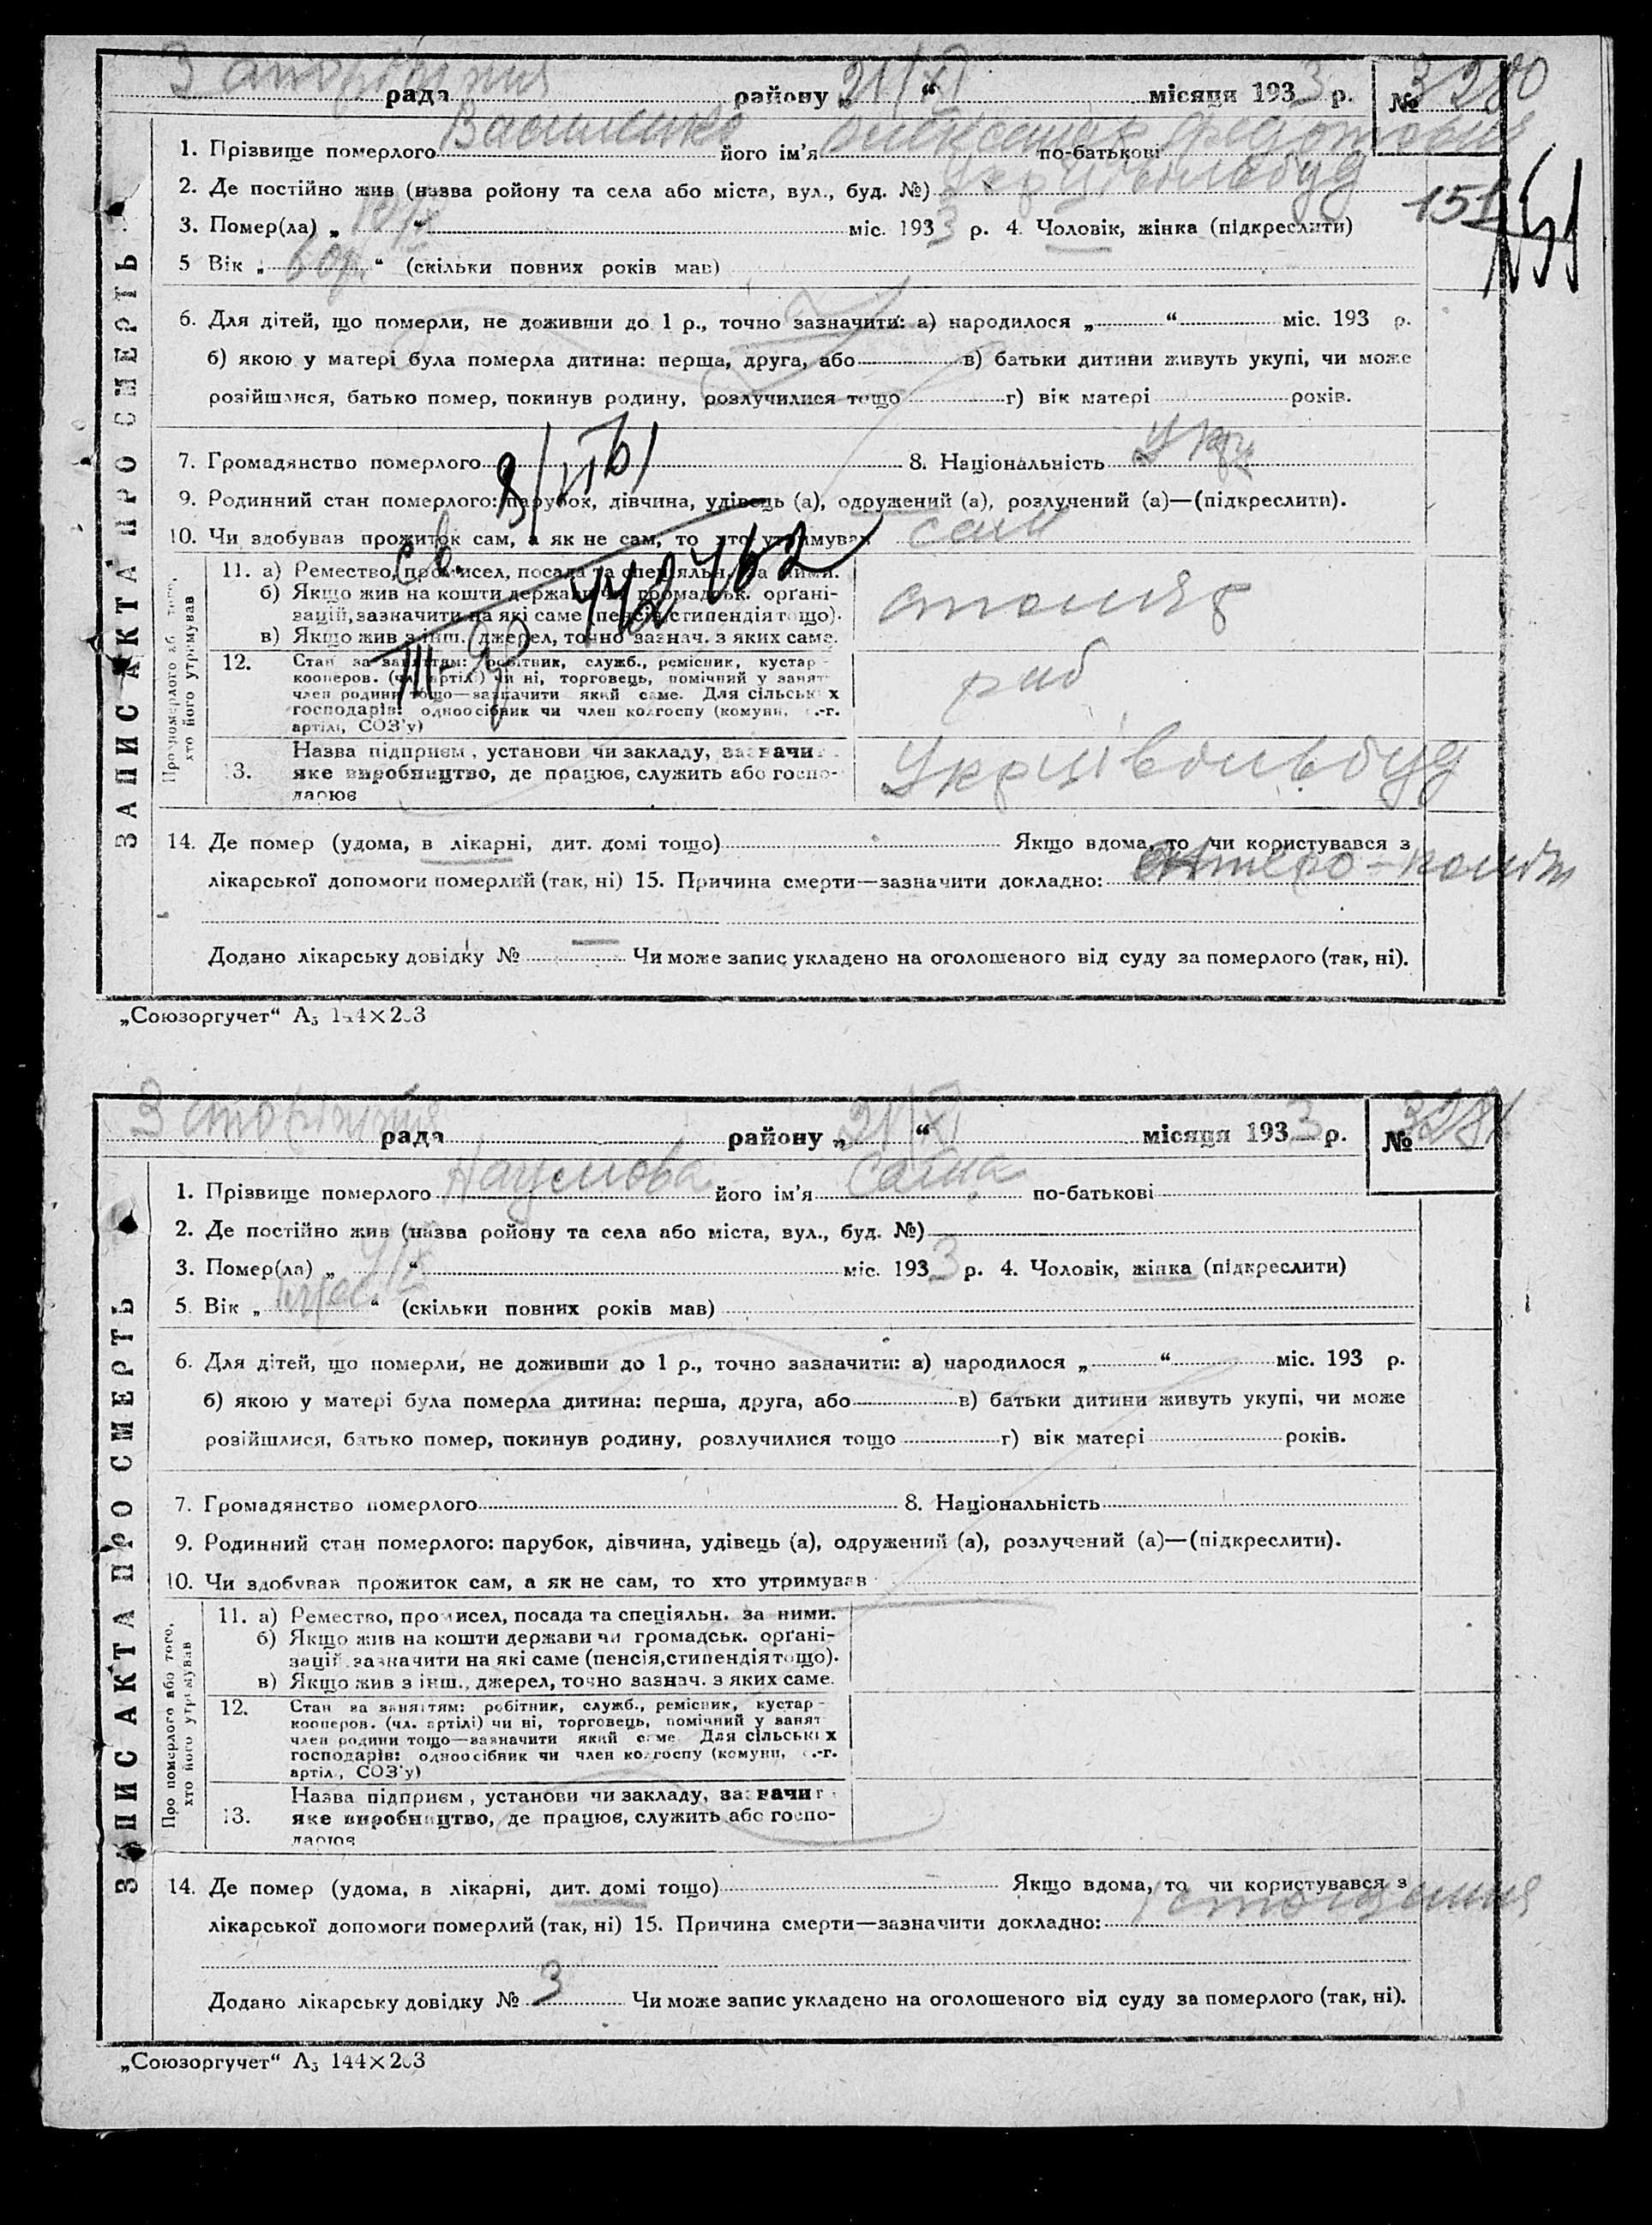 З рада району „ 21/XI “ місяця 1933 р. № 3280
1. Прізвище померлого Василенко його ім'я Олександр по-батькові Федотович
2. Де постійно жив (назва ройону та села або міста, вул., буд. №) Укрцівільбуд
151
3. Помер(ла) „ “ міс. 1933 р. 4. Чоловік, жінка (підкреслити)
5 Вік „ 60р. “ (скільки повних років мав)
6. Для дітей, що померли, не доживши до 1 р., точно зазначити: а) народилося „ “ міс. 193 р.
б) якою у матері була померла дитина: перша, друга, або в) батьки дитини живуть укупі, чи може
розійшлися, батько помер, покинув родину, розлучилися тощо г) вік матері років.
7. Громадянство померлого 8. Національність Укр
9. Родинний стан померлого: парубок, дівчина, удівець (а), одружений (а), розлучений (а)—(підкреслити).
10. Чи здобував прожиток сам, а як не сам, то хто утримував сам
ЗАПИС АКТА ПРО СМЕРТЬ
Про померлого або того,
хто його утримував
11. а) Ремество, промисел, посада та спеціяльн. за ними.
б) Якщо жив на кошти держави чи громадськ. орґані-
зацій, зазначити на які саме (пенсія, стипендія тощо).
в) Якщо жив з інш. джерел, точно зазнач. з яких саме.
столяр
12. Стан за заняттям: робітник, служб., ремісник, кустар-
кооперов. (чл. артілі) чи ні, торговець, помічний у занят
член родини тощо—зазначити який саме. Для сільських
господарів: одноосібник чи член колгоспу (комуни, с.-г.
артілі, СОЗ'у)
роб
Назва підприєм, установи чи закладу, зазначи
13. яке виробництво, де працює, служить або госпо-
дарює
Укрцівільбуд
14. Де помер (удома, в лікарні, дит. домі тощо) Якщо вдома, то чи користувався з
лікарської допомоги померлий (так, ні) 15. Причина смерти—зазначити докладно: ентеро-коліт
Додано лікарську довідку № — Чи може запис укладено на оголошеного від суду за померлого (так, ні).
„Союзоргучет“ А5 144×203
З рада району „ 21/XI “ місяця 1933 р. № 3281
1. Прізвище померлого Наумова його ім'я Саша по-батькові
2. Де постійно жив (назва ройону та села або міста, вул., буд. №)
3. Помер(ла) „ “ міс. 1933 р. 4. Чоловік, жінка (підкреслити)
5. Вік „ “ (скільки повних років мав)
6. Для дітей, що померли, не доживши до 1 р., точно зазначити: а) народилося „ “ міс. 193 р.
б) якою у матері була померла дитина: перша, друга, або в) батьки дитини живуть укупі, чи може
розійшлися, батько помер, покинув родину, розлучилися тощо г) вік матері років.
7. Громадянство померлого 8. Національність
9. Родинний стан померлого: парубок, дівчина, удівець (а), одружений (а), розлучений (а)—(підкреслити).
10. Чи здобував прожиток сам, а як не сам, то хто утримував
ЗАПИС АКТА ПРО СМЕРТЬ
Про померлого або того,
хто його утримував
11. а) Ремество, промисел, посада та спеціяльн. за ними.
б) Якщо жив на кошти держави чи громадськ. орґані-
зацій зазначити на які саме (пенсія, стипендія тощо).
в) Якщо жив з інш., джерел, точно зазнач. з яких саме.
12. Стан за заняттям: робітник, служб., ремісник, кустар-
кооперов. (чл. артілі) чи ні, торговець, помічний у занят
член родини тощо—зазначити який саме Для сільських
господарів: одноосібник чи член колгоспу (комуни, с.-г.
артіл., СОЗ'у)
Назва підприєм, установи чи закладу, зазначит
13. яке виробництво, де працює, служить або госпо-
дарює
14. Де помер (удома, в лікарні, дит. домі тощо) Якщо вдома, то чи користувався з
лікарської допомоги померлий (так, ні) 15. Причина смерти—зазначити докладно: істощення
Додано лікарську довідку № 3 Чи може запис укладено на оголошеного від суду за померлого (так, ні).
„Союзоргучет“ А5 144×203